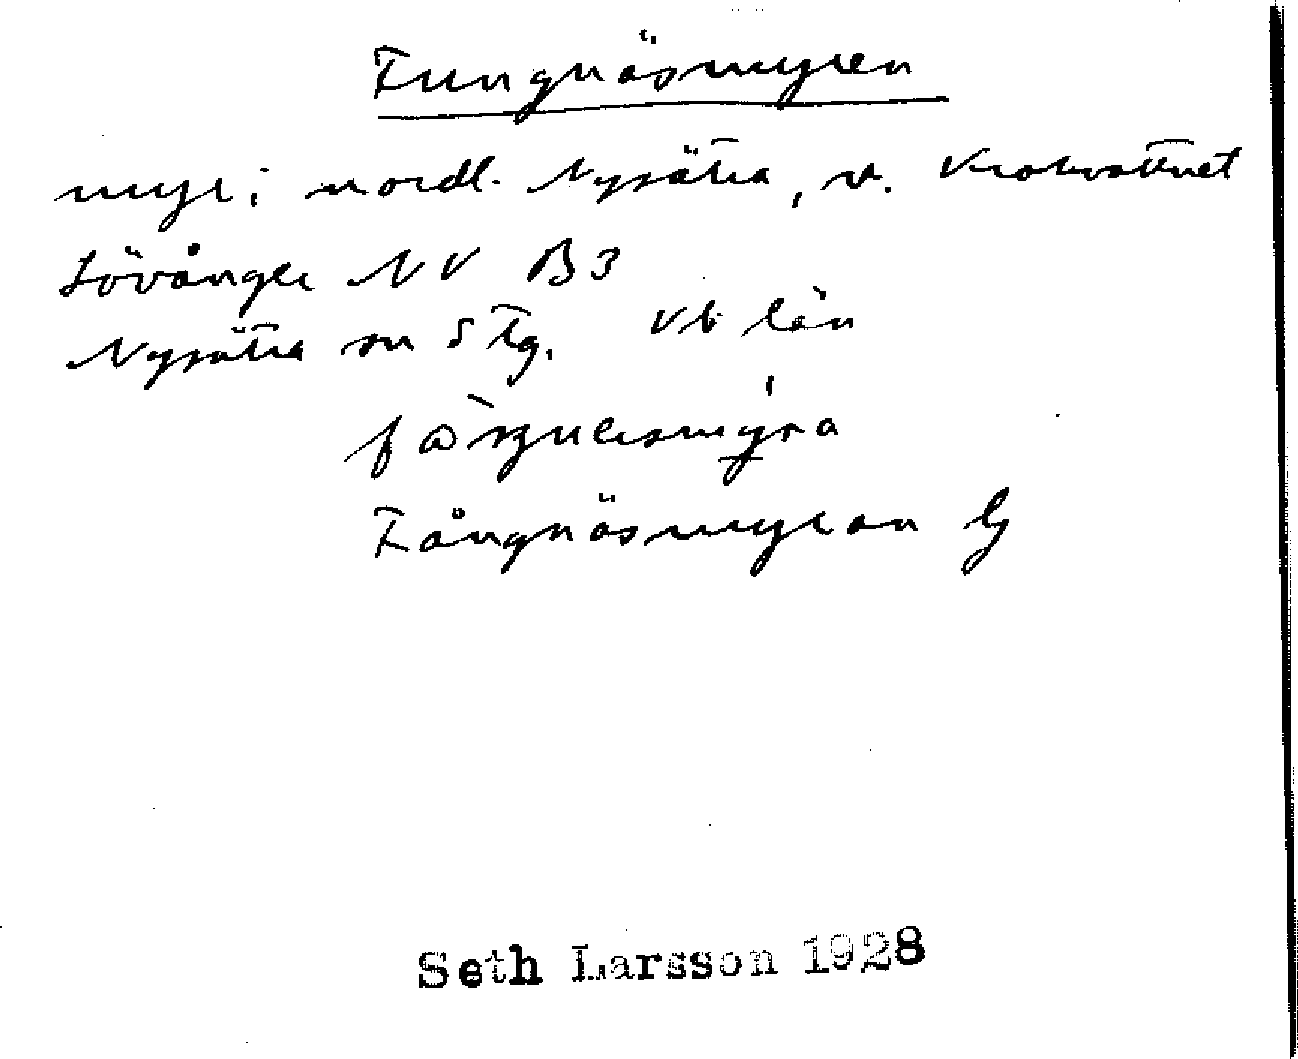 Fungnäsmyren
myr i nordl. Nysätra, v. Krokvattnet
Lövånger NV B3
Nysätra sn S Tg. Vb län
Fångnäsmyran G
Seth Larsson 1928